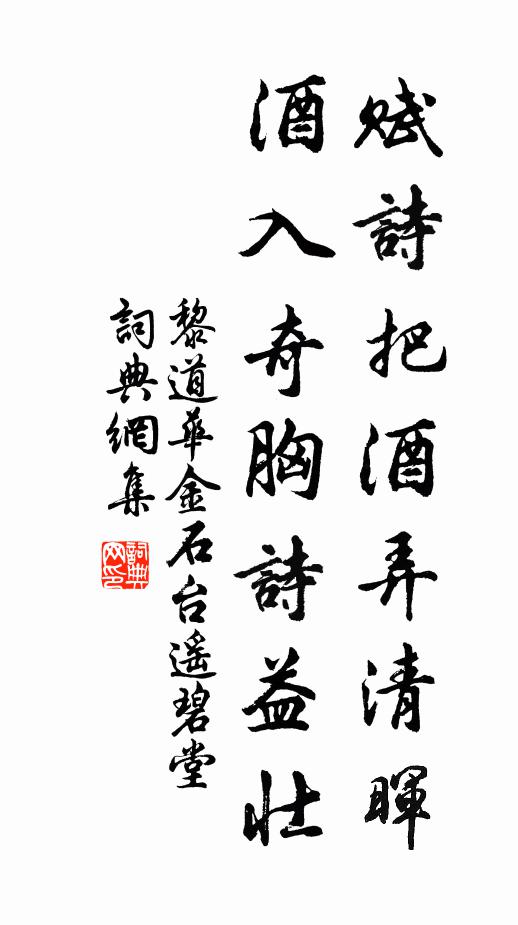 賦詩把酒弄清暉
酒入奇胸詩益壯
黎道華金石台遥碧堂
詞典網集
詞典网印